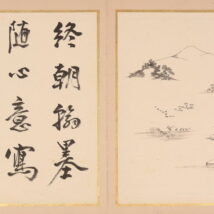 終朝翰墨
随心意寫